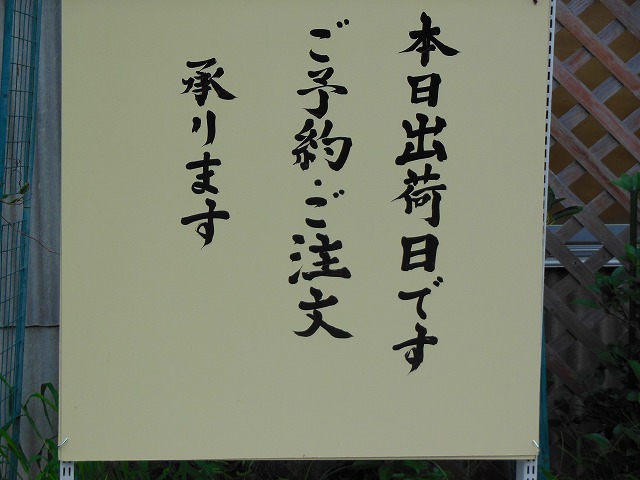 本日出荷日です
ご予約・ご注文
承ります